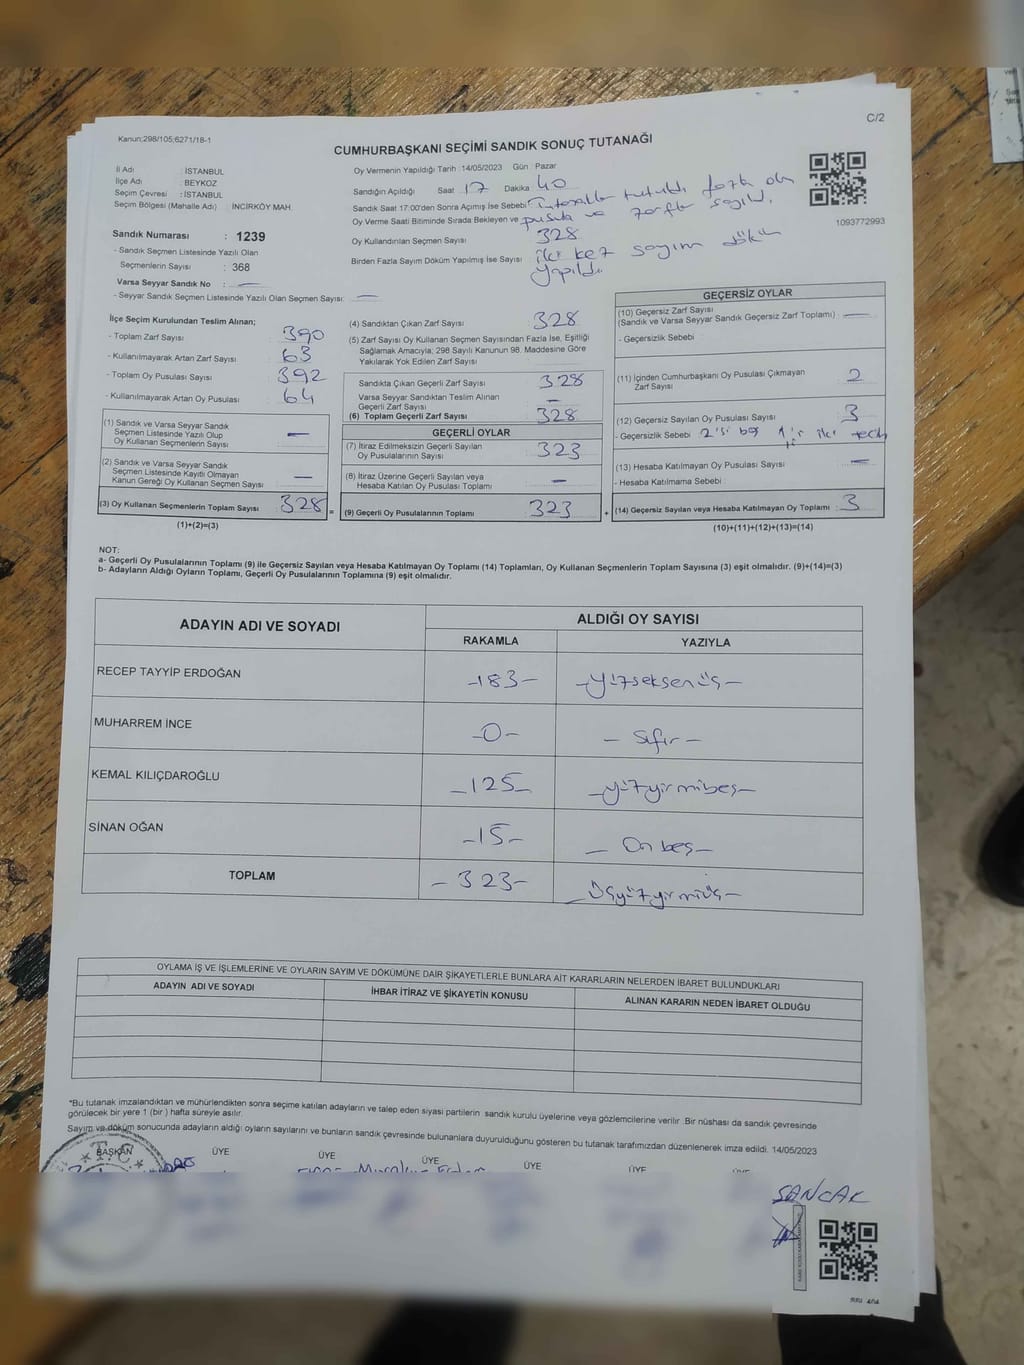 Kanun;298/105;6271/18-1
C/2
CUMHURBAŞKANI SEÇİMİ SANDIK SONUÇ TUTANAĞI
İl Adı : İSTANBUL
İlçe Adı : BEYKOZ
Seçim Çevresi : İSTANBUL
Seçim Bölgesi (Mahalle Adı) : İNCİRKÖY MAH.
Sandık Numarası : 1239
- Sandık Seçmen Listesinde Yazılı Olan
Seçmenlerin Sayısı : 368
Varsa Seyyar Sandık No : —
- Seyyar Sandık Seçmen Listesinde Yazılı Olan Seçmen Sayısı: —
Oy Vermenin Yapıldığı Tarih :14/05/2023 Gün : Pazar
Sandığın Açıldığı Saat 17 Dakika 40
Sandık Saat 17:00'den Sonra Açımış İse Sebebi : tutuldu fazla
Oy Verme Saati Bitiminde Sırada Bekleyen ve pusula ve zarflar sayıldı.
Oy Kullandırılan Seçmen Sayısı 328
Birden Fazla Sayım Döküm Yapılmış İse Sayısı : iki kez sayım döküm
yapıldı
1093772993
İlçe Seçim Kurulundan Teslim Alınan;
- Toplam Zarf Sayısı : 390
- Kullanılmayarak Artan Zarf Sayısı : 63
- Toplam Oy Pusulası Sayısı : 392
- Kullanılmayarak Artan Oy Pusulası : 64
(1) Sandık ve Varsa Seyyar Sandık
Seçmen Listesinde Yazılı Olup
Oy Kullanan Seçmenlerin Sayısı : —
(2) Sandık ve Varsa Seyyar Sandık
Seçmen Listesinde Kayıtlı Olmayan
Kanun Gereği Oy Kullanan Seçmen Sayısı : —
(3) Oy Kullanan Seçmenlerin Toplam Sayısı : 328 =
(1)+(2)=(3)
(4) Sandıktan Çıkan Zarf Sayısı : 328
(5) Zarf Sayısı Oy Kullanan Seçmen Sayısından Fazla İse, Eşitliği
Sağlamak Amacıyla; 298 Sayılı Kanunun 98. Maddesine Göre
Yakılarak Yok Edilen Zarf Sayısı :
Sandıkta Çıkan Geçerli Zarf Sayısı : 328
Varsa Seyyar Sandıktan Teslim Alınan
Geçerli Zarf Sayısı : —
(6) Toplam Geçerli Zarf Sayısı : 328
GEÇERLİ OYLAR
(7) İtiraz Edilmeksizin Geçerli Sayılan
Oy Pusulalarının Sayısı : 323
(8) İtiraz Üzerine Geçerli Sayılan veya
Hesaba Katılan Oy Pusulası Toplamı : —
(9) Geçerli Oy Pusulalarının Toplamı : 323 +
GEÇERSİZ OYLAR
(10) Geçersiz Zarf Sayısı
(Sandık ve Varsa Seyyar Sandık Geçersiz Zarf Toplamı) : —
- Geçersizlik Sebebi :
(11) İçinden Cumhurbaşkanı Oy Pusulası Çıkmayan
Zarf Sayısı : 2
(12) Geçersiz Sayılan Oy Pusulası Sayısı : 3
- Geçersizlik Sebebi : 2'si boş 1'i iki tercih
(13) Hesaba Katılmayan Oy Pusulası Sayısı : —
- Hesaba Katılmama Sebebi :
(14) Geçersiz Sayılan veya Hesaba Katılmayan Oy Toplamı : 3
(10)+(11)+(12)+(13)=(14)
NOT:
a- Geçerli Oy Pusulalarının Toplamı (9) ile Geçersiz Sayılan veya Hesaba Katılmayan Oy Toplamı (14) Toplamları, Oy Kullanan Seçmenlerin Toplam Sayısına (3) eşit olmalıdır. (9)+(14)=(3)
b- Adayların Aldığı Oyların Toplamı, Geçerli Oy Pusulalarının Toplamına (9) eşit olmalıdır.
ADAYIN ADI VE SOYADI
ALDIĞI OY SAYISI
RAKAMLA YAZIYLA
RECEP TAYYİP ERDOĞAN -183- -Yüzseksenüç-
MUHARREM İNCE -0- - Sıfır -
KEMAL KILIÇDAROĞLU -125- -yüzyirmibeş-
SİNAN OĞAN -15- - On beş -
TOPLAM -323- -Üçyüzyirmiüç-
OYLAMA İŞ VE İŞLEMLERİNE VE OYLARIN SAYIM VE DÖKÜMÜNE DAİR ŞİKAYETLERLE BUNLARA AİT KARARLARIN NELERDEN İBARET BULUNDUKLARI
ADAYIN ADI VE SOYADI İHBAR İTİRAZ VE ŞİKAYETİN KONUSU ALINAN KARARIN NEDEN İBARET OLDUĞU
*Bu tutanak imzalandıktan ve mühürlendikten sonra seçime katılan adayların ve talep eden siyasi partilerin sandık kurulu üyelerine veya gözlemcilerine verilir. Bir nüshası da sandık çevresinde
görülecek bir yere 1 (bir ) hafta süreyle asılır.
Sayım ve döküm sonucunda adayların aldığı oyların sayılarını ve bunların sandık çevresinde bulunanlara duyurulduğunu gösteren bu tutanak tarafımızdan düzenlenerek imza edildi. 14/05/2023
BAŞKAN ÜYE ÜYE ÜYE ÜYE ÜYE ÜYE
T.C.
SANCAK